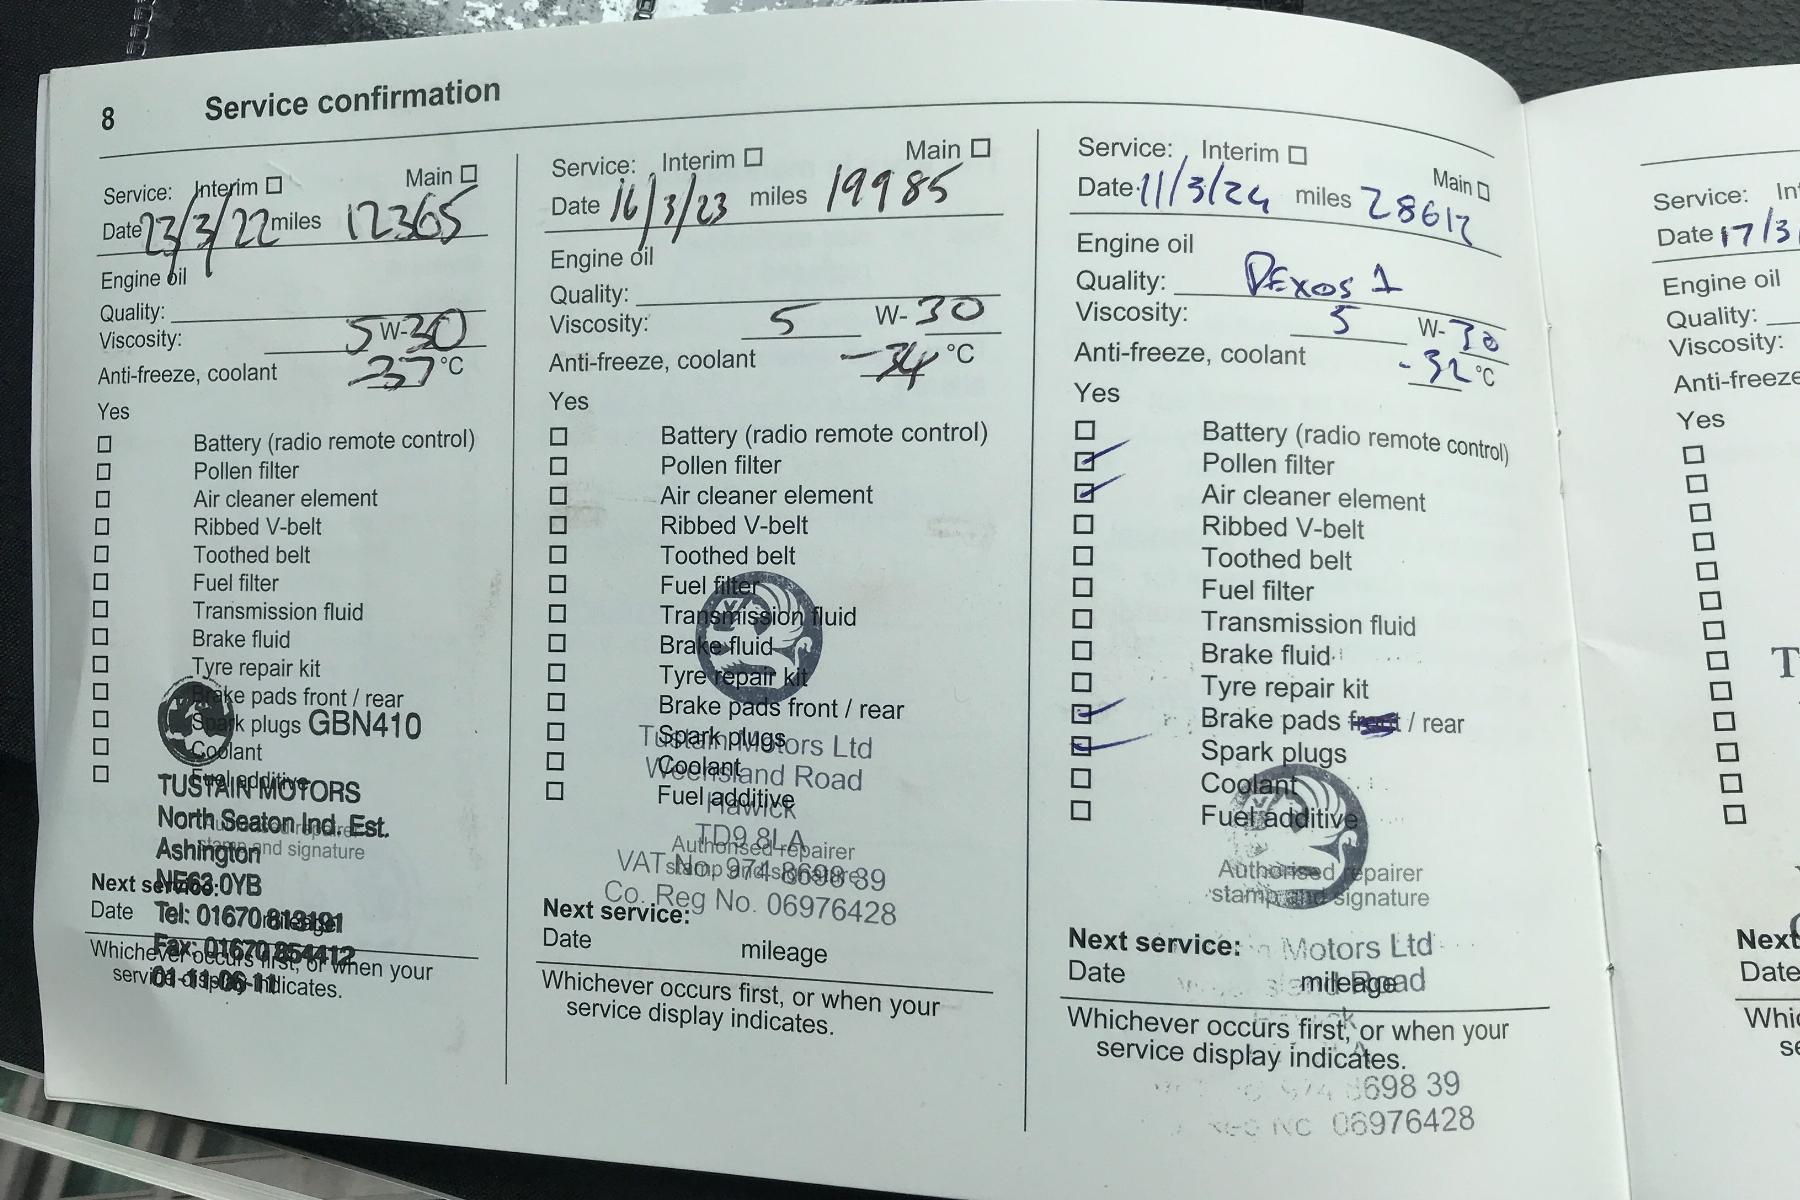 8 Service confirmation
Service: Interim Main
Date 23/3/22 miles 12365
Engine oil
Quality:
Viscosity: 5 W-30
Anti-freeze, coolant -37 °C
Yes
Battery (radio remote control)
Pollen filter
Air cleaner element
Ribbed V-belt
Toothed belt
Fuel filter
Transmission fluid
Brake fluid
Tyre repair kit
Brake pads front / rear
Spark plugs GBN410
Coolant
Fuel additive
TUSTAIN MOTORS
North Seaton Ind. Est.
Authorised repairer
Ashington
stamp and signature
NE63 0YB
Next service:
Date mileage
Tel: 01670 813191
Fax: 01670 854412
Whichever occurs first, or when your
service display indicates.
01-11-06-11
Service: Interim Main
Date 16/3/23 miles 19985
Engine oil
Quality:
Viscosity: 5 W-30
Anti-freeze, coolant -34 °C
Yes
Battery (radio remote control)
Pollen filter
Air cleaner element
Ribbed V-belt
Toothed belt
Fuel filter
Transmission fluid
Brake fluid
Tyre repair kit
Brake pads front / rear
Spark plugs
Tustain Motors Ltd
Coolant
Weensland Road
Fuel additive
Hawick
TD9 8LA
Authorised repairer
stamp and signature
VAT No. 974 8698 39
Co. Reg No. 06976428
Next service:
Date mileage
Whichever occurs first, or when your
service display indicates.
Service: Interim Main
Date 11/3/24 miles 28612
Engine oil
Quality: DExos 1
Viscosity: 5 W-30
Anti-freeze, coolant -32 °C
Yes
Battery (radio remote control)
Pollen filter
Air cleaner element
Ribbed V-belt
Toothed belt
Fuel filter
Transmission fluid
Brake fluid
Tyre repair kit
Brake pads front / rear
Spark plugs
Coolant
Fuel additive
Authorised repairer
stamp and signature
Next service: Motors Ltd
Date mileage Road
Whichever occurs first, or when your
service display indicates.
974 8698 39
06976428
Service: Int
Date 17/3/
Engine oil
Quality:
Viscosity:
Anti-freeze
Yes
T
Next
Date
Whic
se